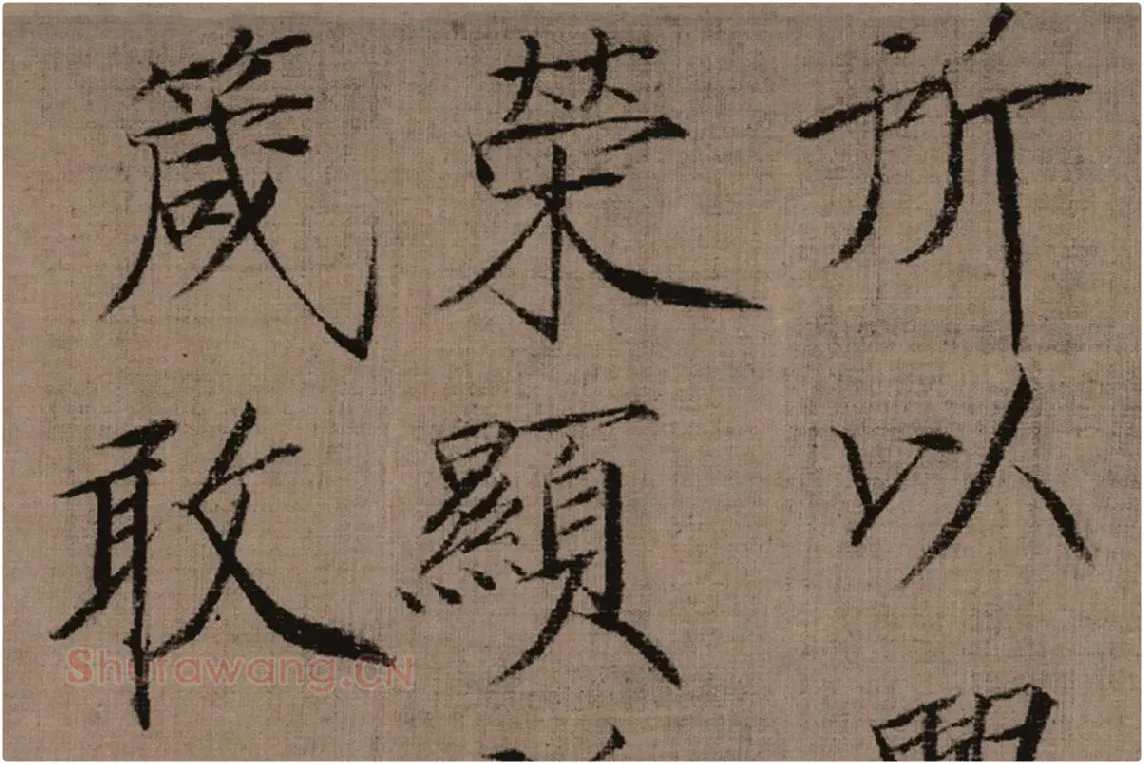 所以
榮顯
箴敢
Shufawang.CN